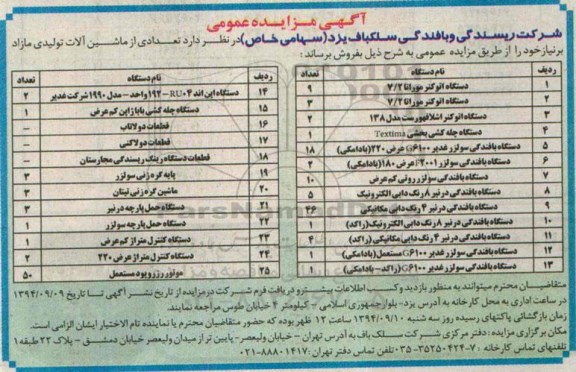 آگهی مزایده عمومی
شرکت ریسندگی و بافندگی سلکباف یزد (سهامی خاص) در نظر دارد تعدادی از ماشین آلات تولیدی مازاد
برنیاز خود را از طریق مزایده عمومی به شرح ذیل بفروش برساند:
ردیف نام دستگاه تعداد
۱ دستگاه اتوکنر موراتا ۷/۲ ۹
۲ دستگاه اتوکنر موراتا ۷/۲ ۳
۳ دستگاه اتوکنر اشلافهورست مدل ۱۳۸ ۲
۴ دستگاه چله کشی بخشی Textima ۱
۵ دستگاه بافندگی سولزر غدیر G۶۱۰۰ عرض ۲۲۰ (بادامکی) ۱۸
۶ دستگاه بافندگی سولزر F۲۰۰۱ عرض ۱۸۰ (بادامکی) ۲
۷ دستگاه بافندگی سولزر روتی کم عرض ۱۰
۸ دستگاه بافندگی درنیر ۸ رنگ دابی الکترونیک ۵
۹ دستگاه بافندگی درنیر ۴ رنگ دابی مکانیکی ۴۶
۱۰ دستگاه بافندگی درنیر ۸ رنگ دابی الکترونیک (راکد) ۱
۱۱ دستگاه بافندگی درنیر ۴ رنگ دابی مکانیکی (راکد) ۴
۱۲ دستگاه بافندگی سولزر غدیر G۶۱۰۰ مستعمل (بادامکی) ۱
۱۳ دستگاه بافندگی سولزر غدیر G۶۱۰۰ (راکد - بادامکی) ۱
ردیف نام دستگاه تعداد
۱۴ دستگاه اپن اند RU۰۴ – ۱۹۲ واحد – مدل ۱۹۹۰ شرکت غدیر ۲
۱۵ دستگاه چله کشی بابا ژاپن کم عرض ۱
۱۶ قطعات دولاتاب -
۱۷ قطعات دولاکنی -
۱۸ قطعات دستگاه رینگ ریسندگی مجارستان -
۱۹ پایه گره زنی سولزر ۳
۲۰ ماشین گره زنی تیتان ۳
۲۱ دستگاه حمل پارچه درنیر ۳
۲۲ دستگاه حمل پارچه سولزر ۱
۲۳ دستگاه کنترل متراژ کم عرض ۱
۲۴ دستگاه کنترل متراژ عرض ۲۲۰ ۲
۲۵ موتور رزرو پود مستعمل ۵۰
متقاضیان محترم میتوانند به منظور بازدید و کسب اطلاعات بیشتر و دریافت فرم شرکت در مزایده از تاریخ نشر آگهی تا تاریخ ۱۳۹۴/۰۹/۰۹
در ساعات اداری به آدرس یزد- بلوار جمهوری اسلامی – کیلومتر ۴ خیابان طوس مراجعه نمایند.
زمان بازگشائی پاکتهای رسیده روز سه شنبه ۱۳۹۴/۰۹/۱۰ ساعت ۱۲ ظهر بوده که حضور متقاضیان محترم یا نماینده تام الاختیار ایشان الزامی است.
مکان برگزاری مزایده : دفتر مرکزی شرکت سلک باف به آدرس تهران – خیابان ولیعصر- پایین تر از میدان ولیعصر خیابان دمشق – پلاک ۲۲ طبقه ۱
تلفنهای تماس کارخانه : ۷-۰۳۵-۳۵۲۵۰۴۲۴ تلفن تماس دفتر تهران : ۰۲۱-۸۸۸۰۱۴۱۷